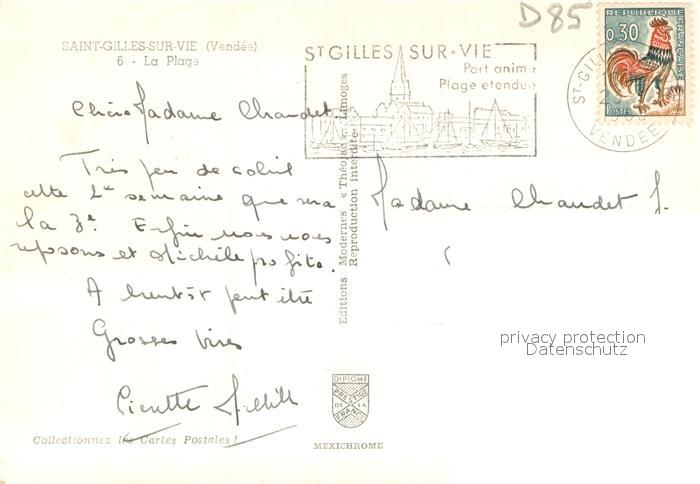 D85
SAINT-GILLES-SUR-VIE (Vendée)
6 - La Plage
ST GILLES SUR-VIE
Port anime
Plage etendue
REPUBLIQUE FRANÇAISE
0,30
POSTES
ST-GILL
VENDEE
Chère Madame Chaudet,
Très peu de soleil
cette 2e semaine que sera
la 3e. Enfin nous nous
reposons et Michèle profite.
A bientôt peut être
Grosses bises
Madame Chaudet J.
Editions Modernes « Théojac », Limoges
Reproduction interdite
privacy protection
Datenschutz
DIPLOME
PRESTIGE
DE LA
FRANCE
MEXICHROME
Collectionnez les Cartes Postales !